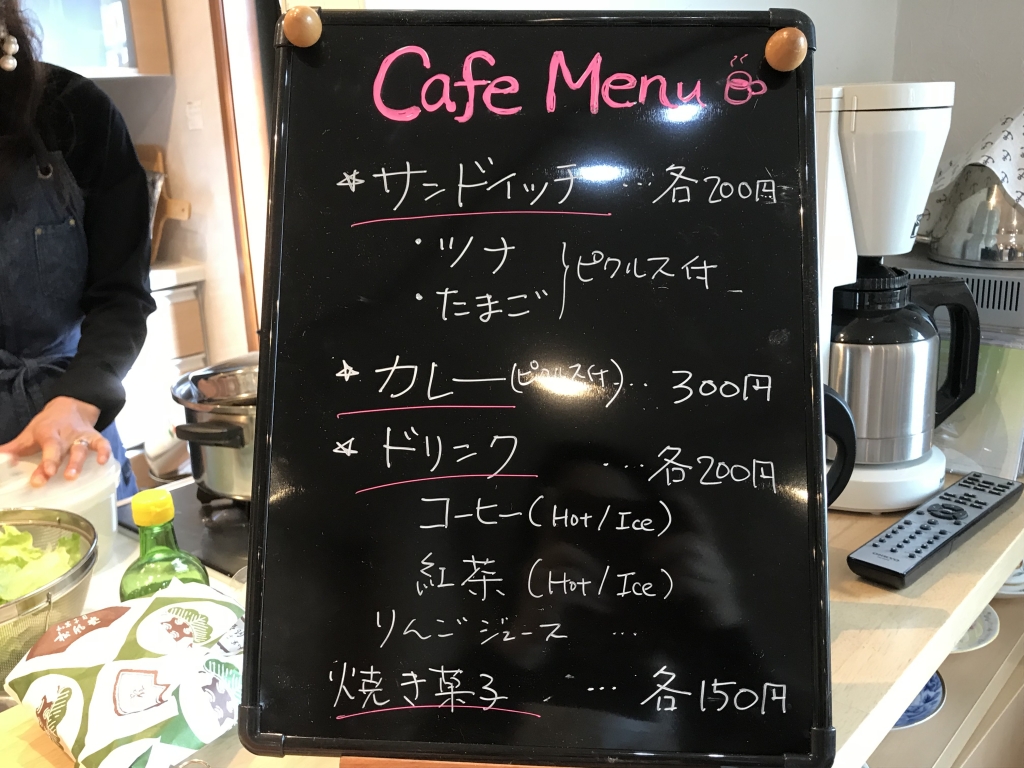 Cafe Menu
☆サンドイッチ … 各200円
・ツナ
・たまご
ピクルス付
☆カレー(ピクルス付)… 300円
☆ドリンク … 各200円
コーヒー(Hot/Ice)
紅茶(Hot/Ice)
りんごジュース …
焼き菓子 … 各150円